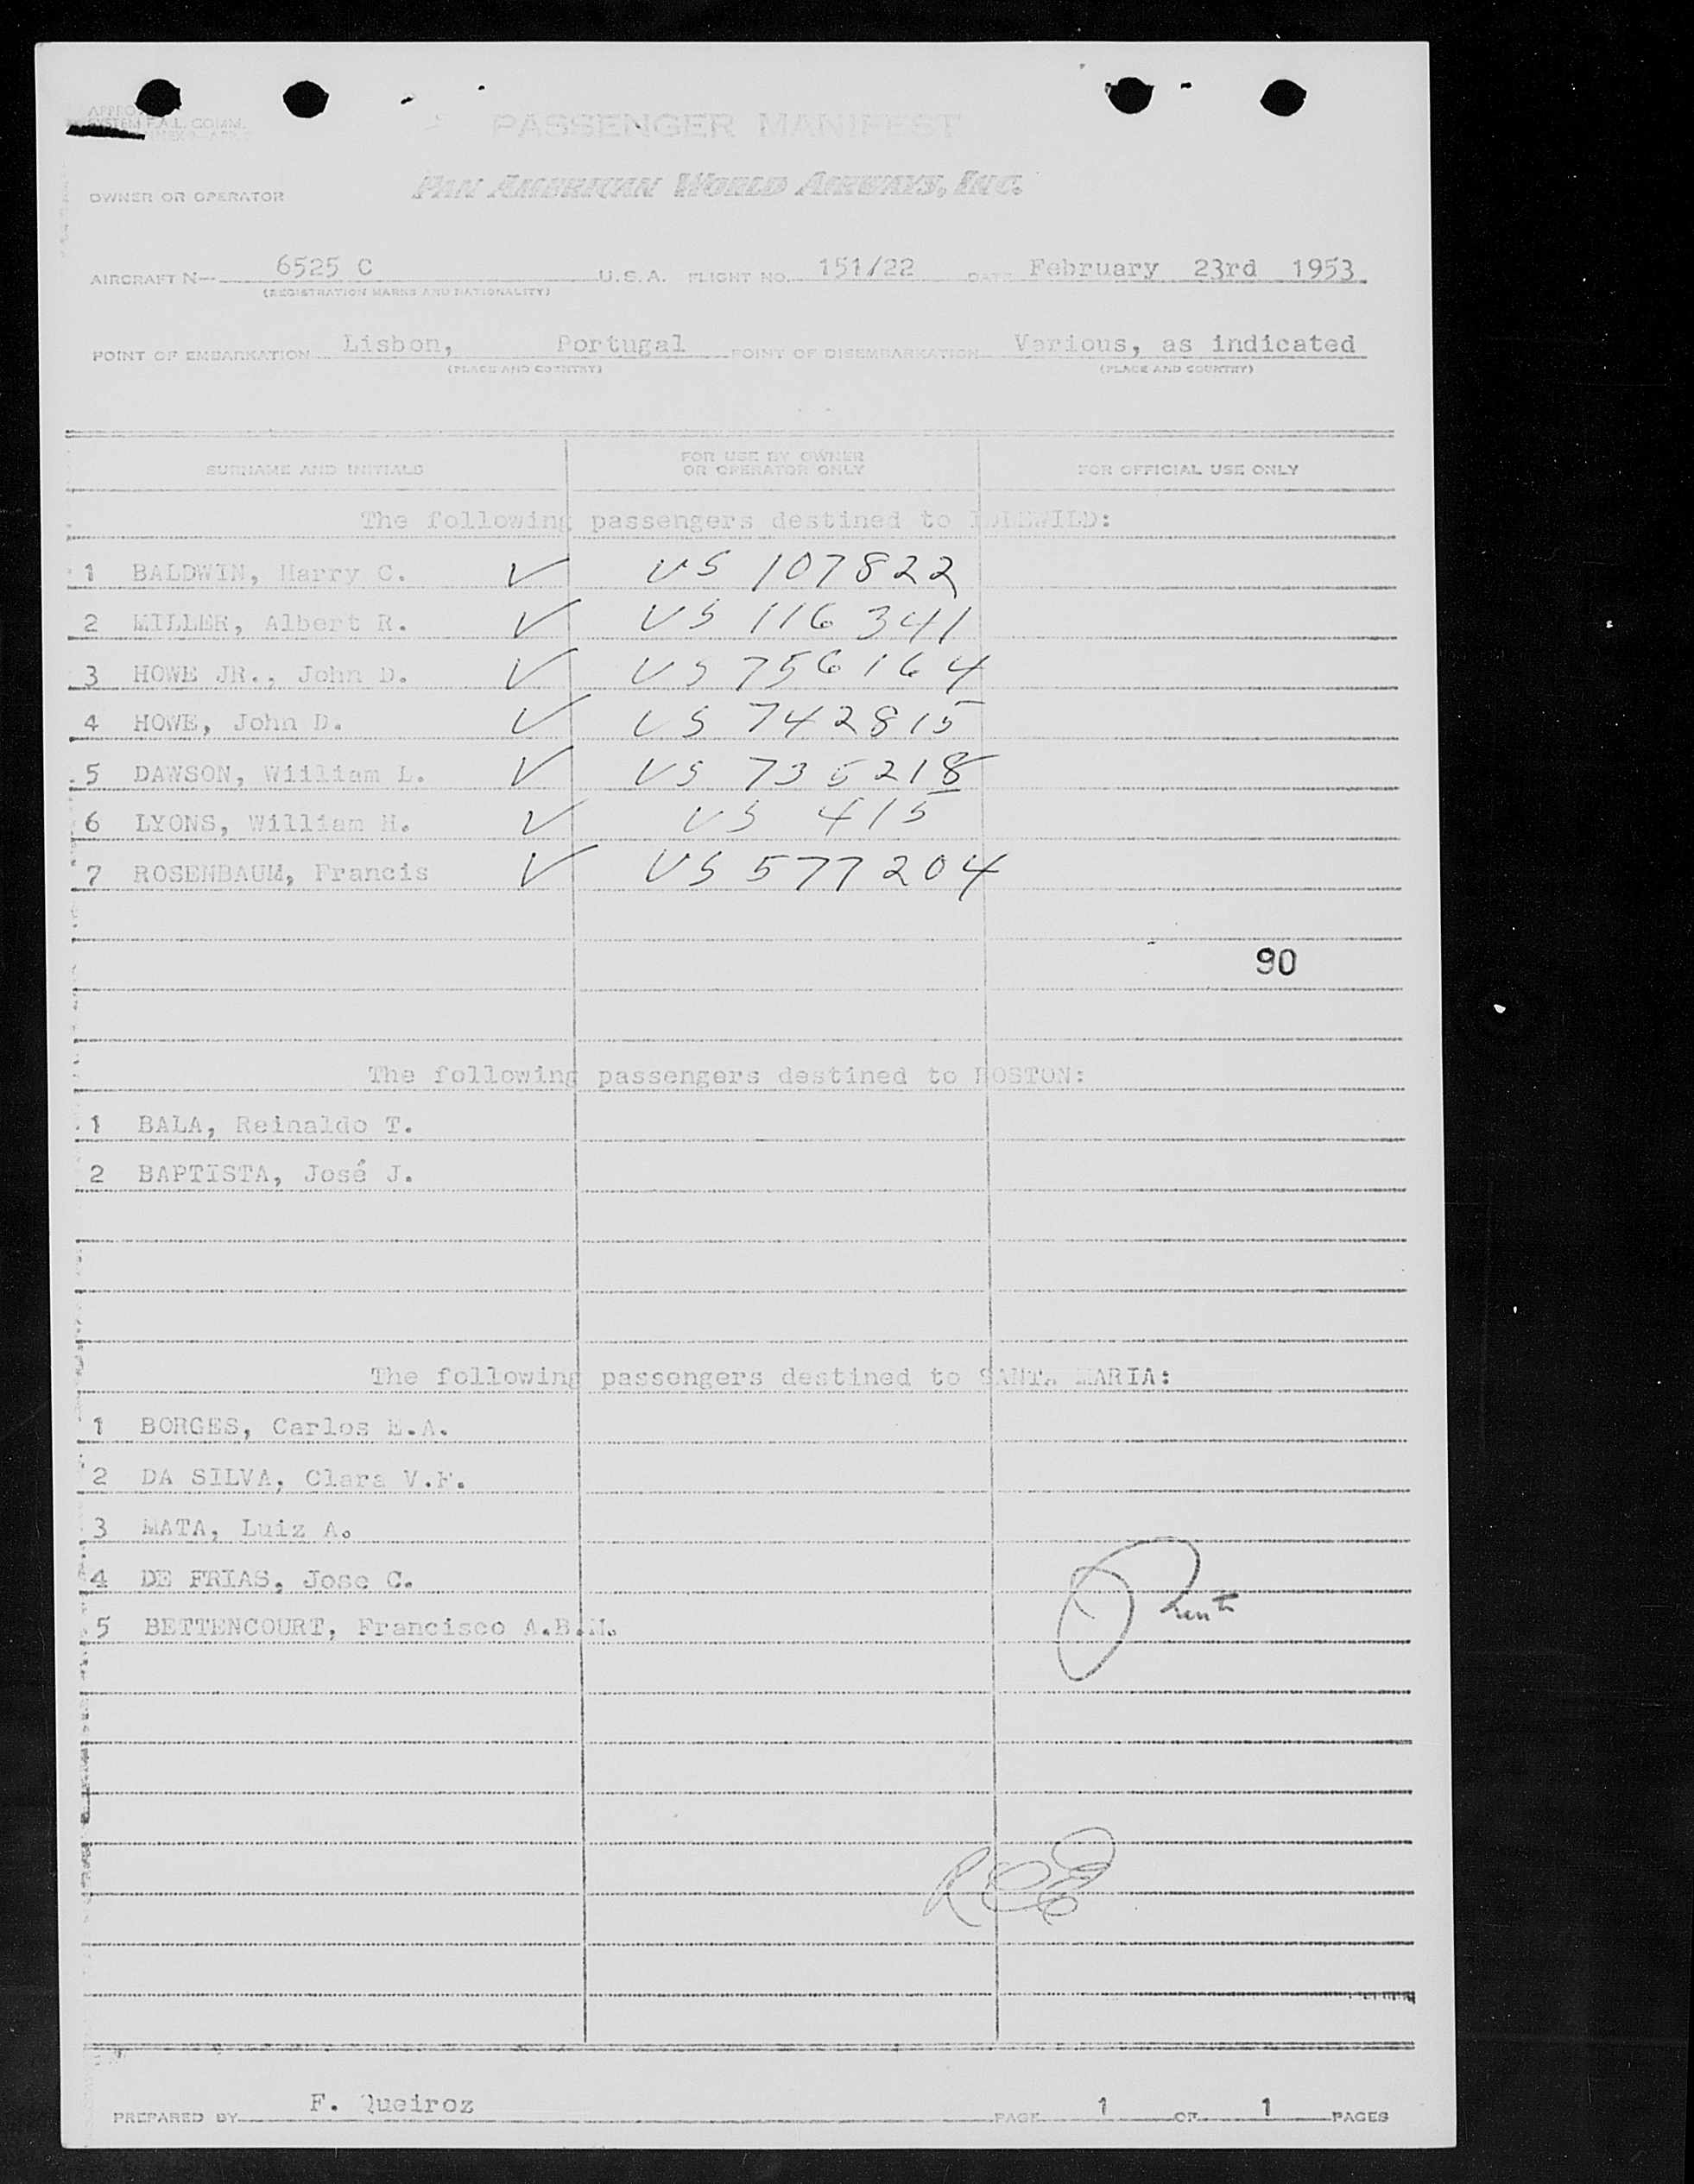 PASSENGER MANIFEST
SYSTEM F.A.L. COMM.
OWNER OR OPERATOR PAN AMERICAN WORLD AIRWAYS, INC.
AIRCRAFT N— 6525 C U.S.A. FLIGHT NO. 151/22 DATE February 23rd 1953
(REGISTRATION MARKS AND NATIONALITY)
POINT OF EMBARKATION Lisbon, Portugal POINT OF DISEMBARKATION Various, as indicated
(PLACE AND COUNTRY) (PLACE AND COUNTRY)
SURNAME AND INITIALS FOR USE BY OWNER OR OPERATOR ONLY FOR OFFICIAL USE ONLY
The following passengers destined to IDLEWILD:
1 BALDWIN, Harry C. ✓ US 107822
2 MILLER, Albert R. ✓ US 116341
3 HOWE JR., John D. ✓ US 756164
4 HOWE, John D. ✓ US 742815
5 DAWSON, William L. ✓ US 735218
6 LYONS, William H. ✓ US 415
7 ROSENBAUM, Francis ✓ US 577204
90
The following passengers destined to BOSTON:
1 BALA, Reinaldo T.
2 BAPTISTA, José J.
The following passengers destined to SANTA MARIA:
1 BORGES, Carlos E.A.
2 DA SILVA, Clara V.F.
3 MATA, Luiz A.
4 DE FRIAS, Jose C.
5 BETTENCOURT, Francisco A.B.M.
PREPARED BY F. Queiroz PAGE 1 OF 1 PAGES